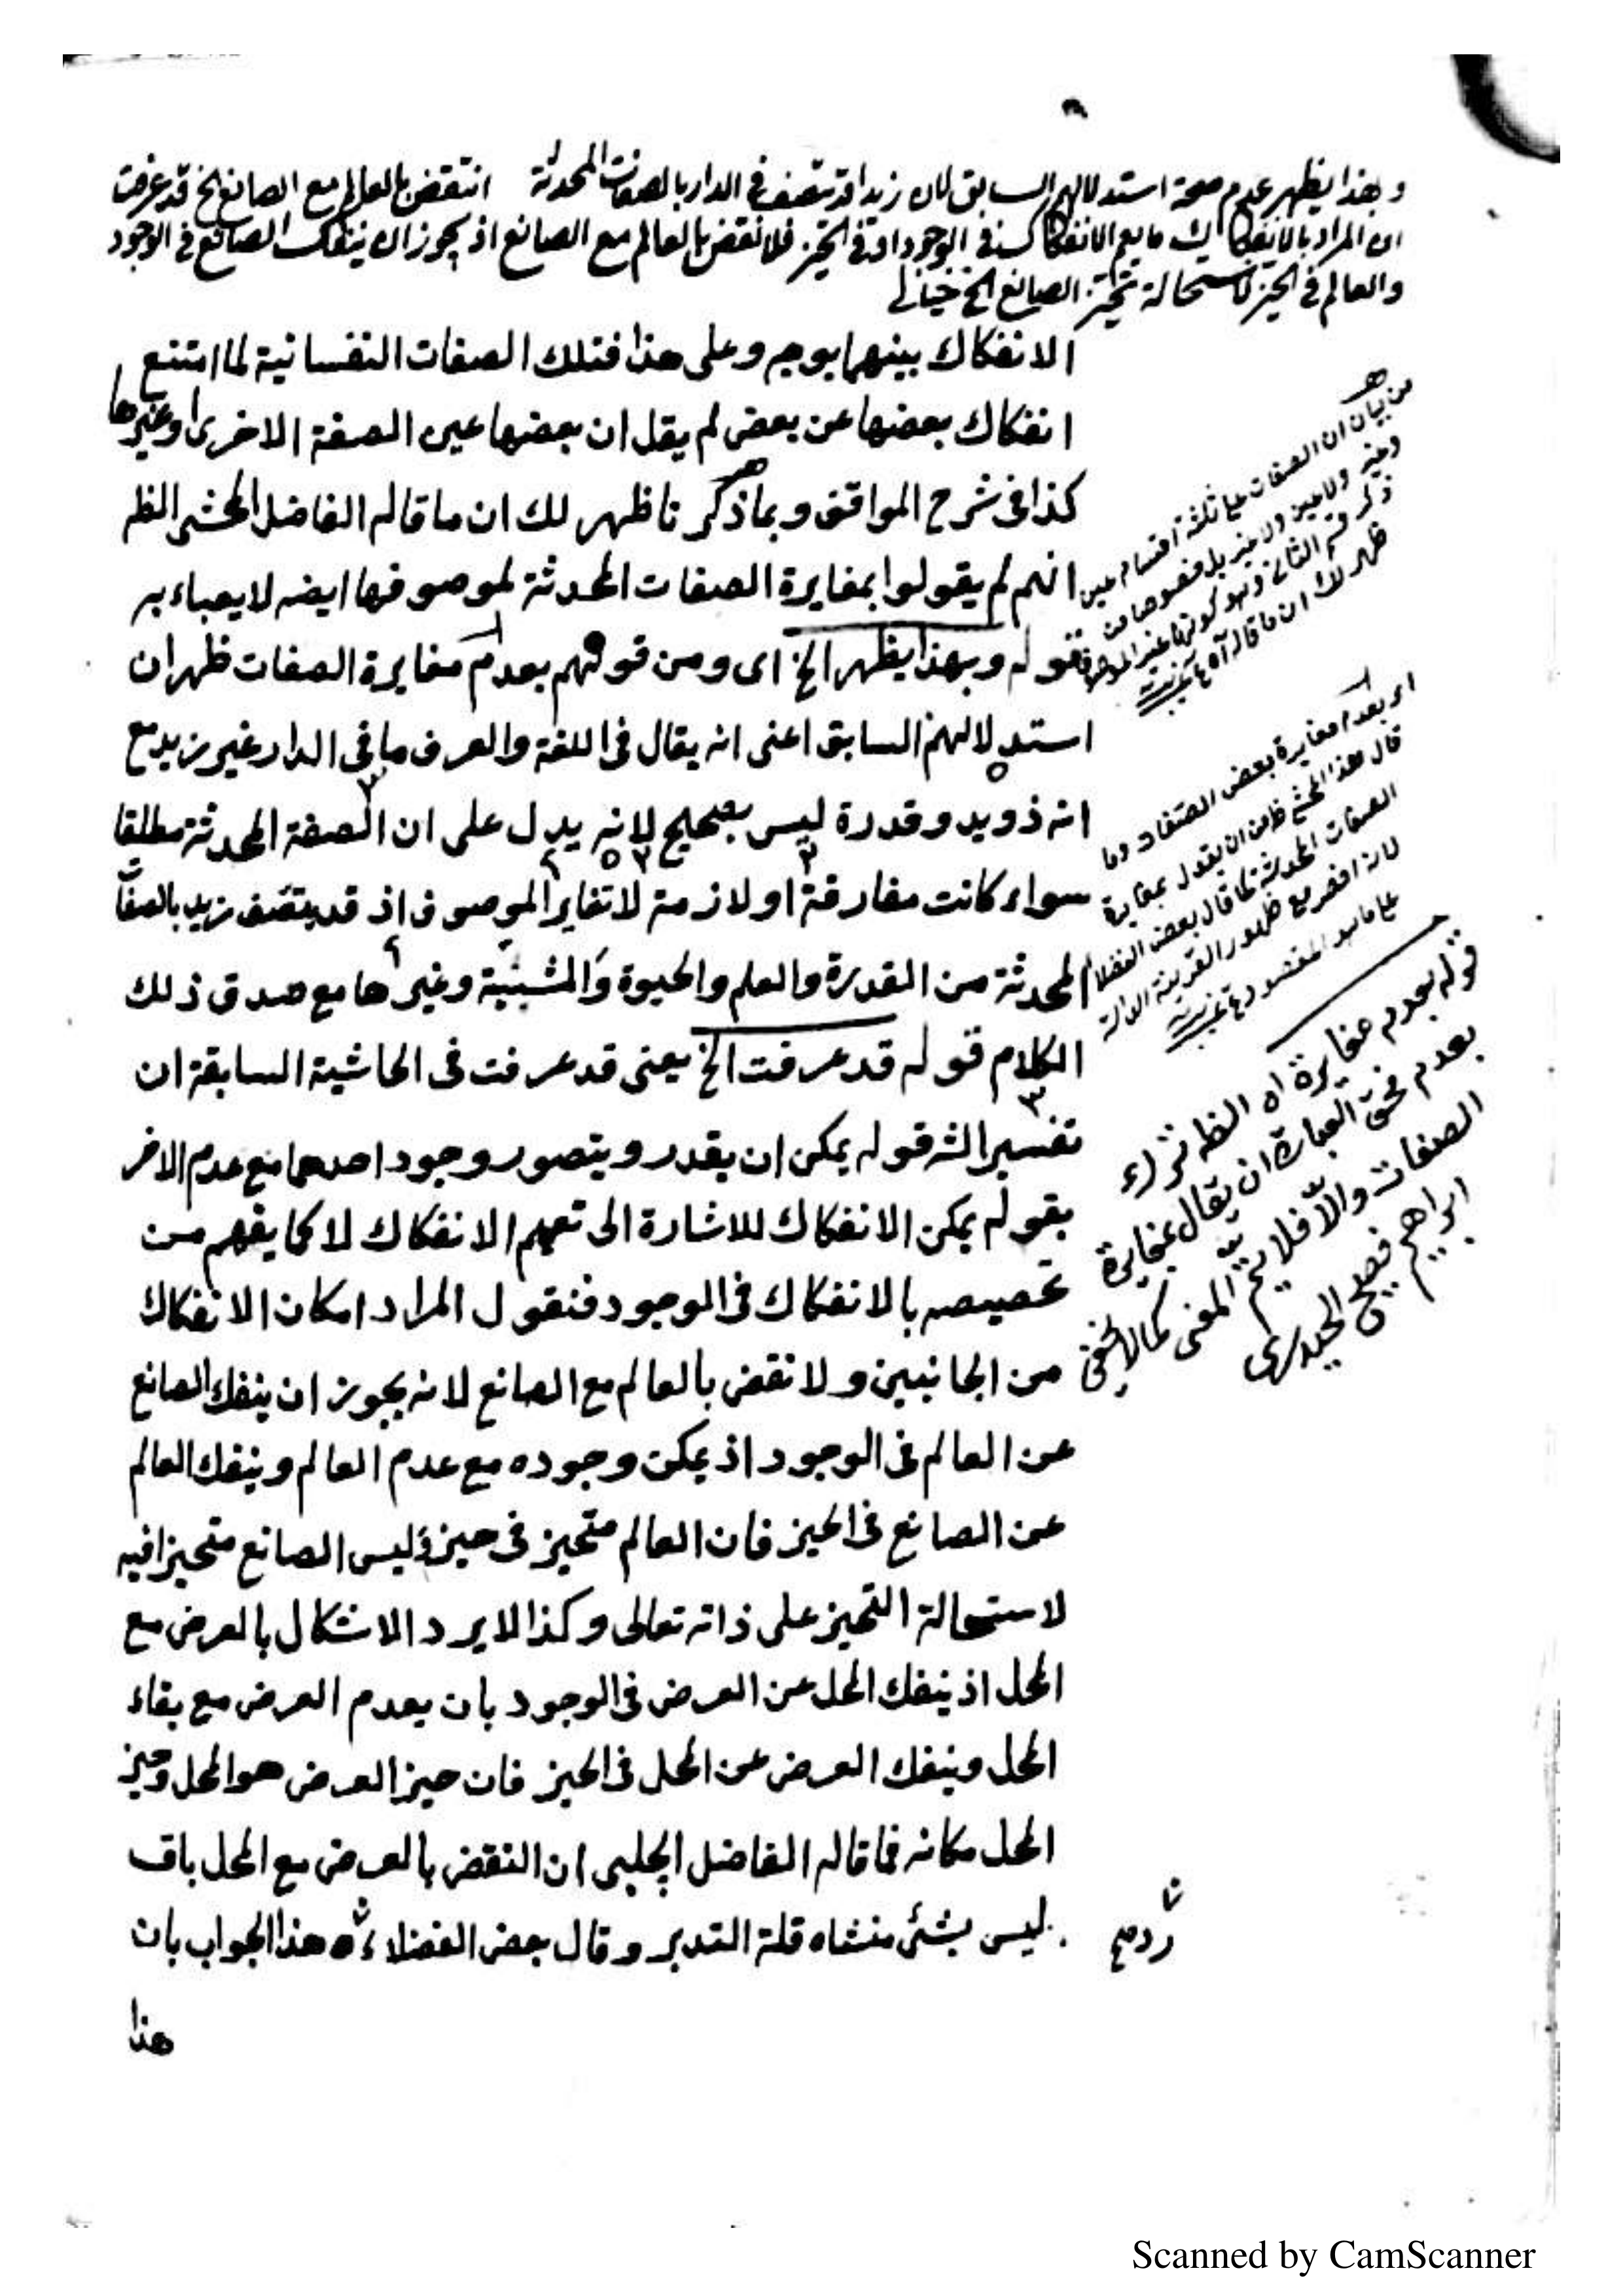 وبهذا يظهر عدم صحة استدلالهم السابق لان زيدا قد يتصف في الدار بالصفات المحدثة انتقض بالعالم مع الصانع الخ قد عرفت
ان المراد بالانفكاك ما يعم الانفكاك في الوجود او في الحيز فلا نقض بالعالم مع الصانع اذ يجوز ان ينفك الصانع في الوجود
والعالم في الحيز لاستحالة تحيز الصانع الخ خيالي
الانفكاك بينهما بوجه وعلى هذا فتلك الصفات النفسانية لما امتنع
انفكاك بعضها عن بعض لم يقل ان بعضها عين الصفة الاخرى او غيرها
كذا فى شرح المواقف وبما ذكرنا ظهر لك ان ما قاله الفاضل المحشى الظ
انهم لم يقولوا بمغايرة الصفات المحدثة لموصوفها ايضه لا يعباء به
قوله وبهذا يظهر الخ اى ومن قولهم بعدم مغايرة الصفات ظهر ان
استدلالهم السابق اعنى انه يقال فى اللغة والعرف ما فى الدار غير زيد مع
انه ذو يد وقدرة ليس بصحيح لانه يدل على ان الصفة المحدثة مطلقا
سواء كانت مفارقة او لازمة لا تغاير الموصوف اذ قد يتصف زيد بالصفات
المحدثة من القدرة والعلم والحيوة والمشيئة وغيرها مع صدق ذلك
الكلام قوله قد عرفت الخ يعنى قد عرفت فى الحاشية السابقة ان
تفسير الش قوله يمكن ان يقدر ويتصور وجود احدهما مع عدم الاخر
بقوله يمكن الانفكاك للاشارة الى تعميم الانفكاك لا كما يفهم من
تخصيصه بالانفكاك فى الوجود فنقول المراد امكان الانفكاك
من الجانبين ولا نقض بالعالم مع الصانع لانه يجوز ان ينفك الصانع
عن العالم فى الوجود اذ يمكن وجوده مع عدم العالم وينفك العالم
عن الصانع فى الحيز فان العالم متحيز فى حيز وليس الصانع متحيزا فيه
لاستحالة التحيز على ذاته تعالى وكذا لا يرد الاشكال بالعرض مع
المحل اذ ينفك المحل عن العرض فى الوجود بان يعدم العرض مع بقاء
المحل وينفك العرض عن المحل فى الحيز فان حيز العرض هو المحل وحيز
المحل مكانه فما قاله الفاضل الچلبى ان النقض بالعرض مع المحل باق
ليس بشئ منشاه قلة التدبر وقال بعض الفضلاء هذا الجواب بان
هذا
من بيان ان الصفات على ثلثة اقسام عين
وغير ولا عين ولا غير
ظهر لك ان ما قاله
اى بعدم مغايرة بعض الصفات
قال هذا المحشى
الصفات المحدثة كما قال بعض الفضلاء
مع ظهور القرينة الدالة
على ما هو المقصود
قوله بعدم مغايرة اه الظ
بعدم العبارة ان يقال بمغايرة
الصفات والا فلا يتم المعنى كما لا يخفى
ابراهيم فصيح الحيدرى
Scanned by CamScanner